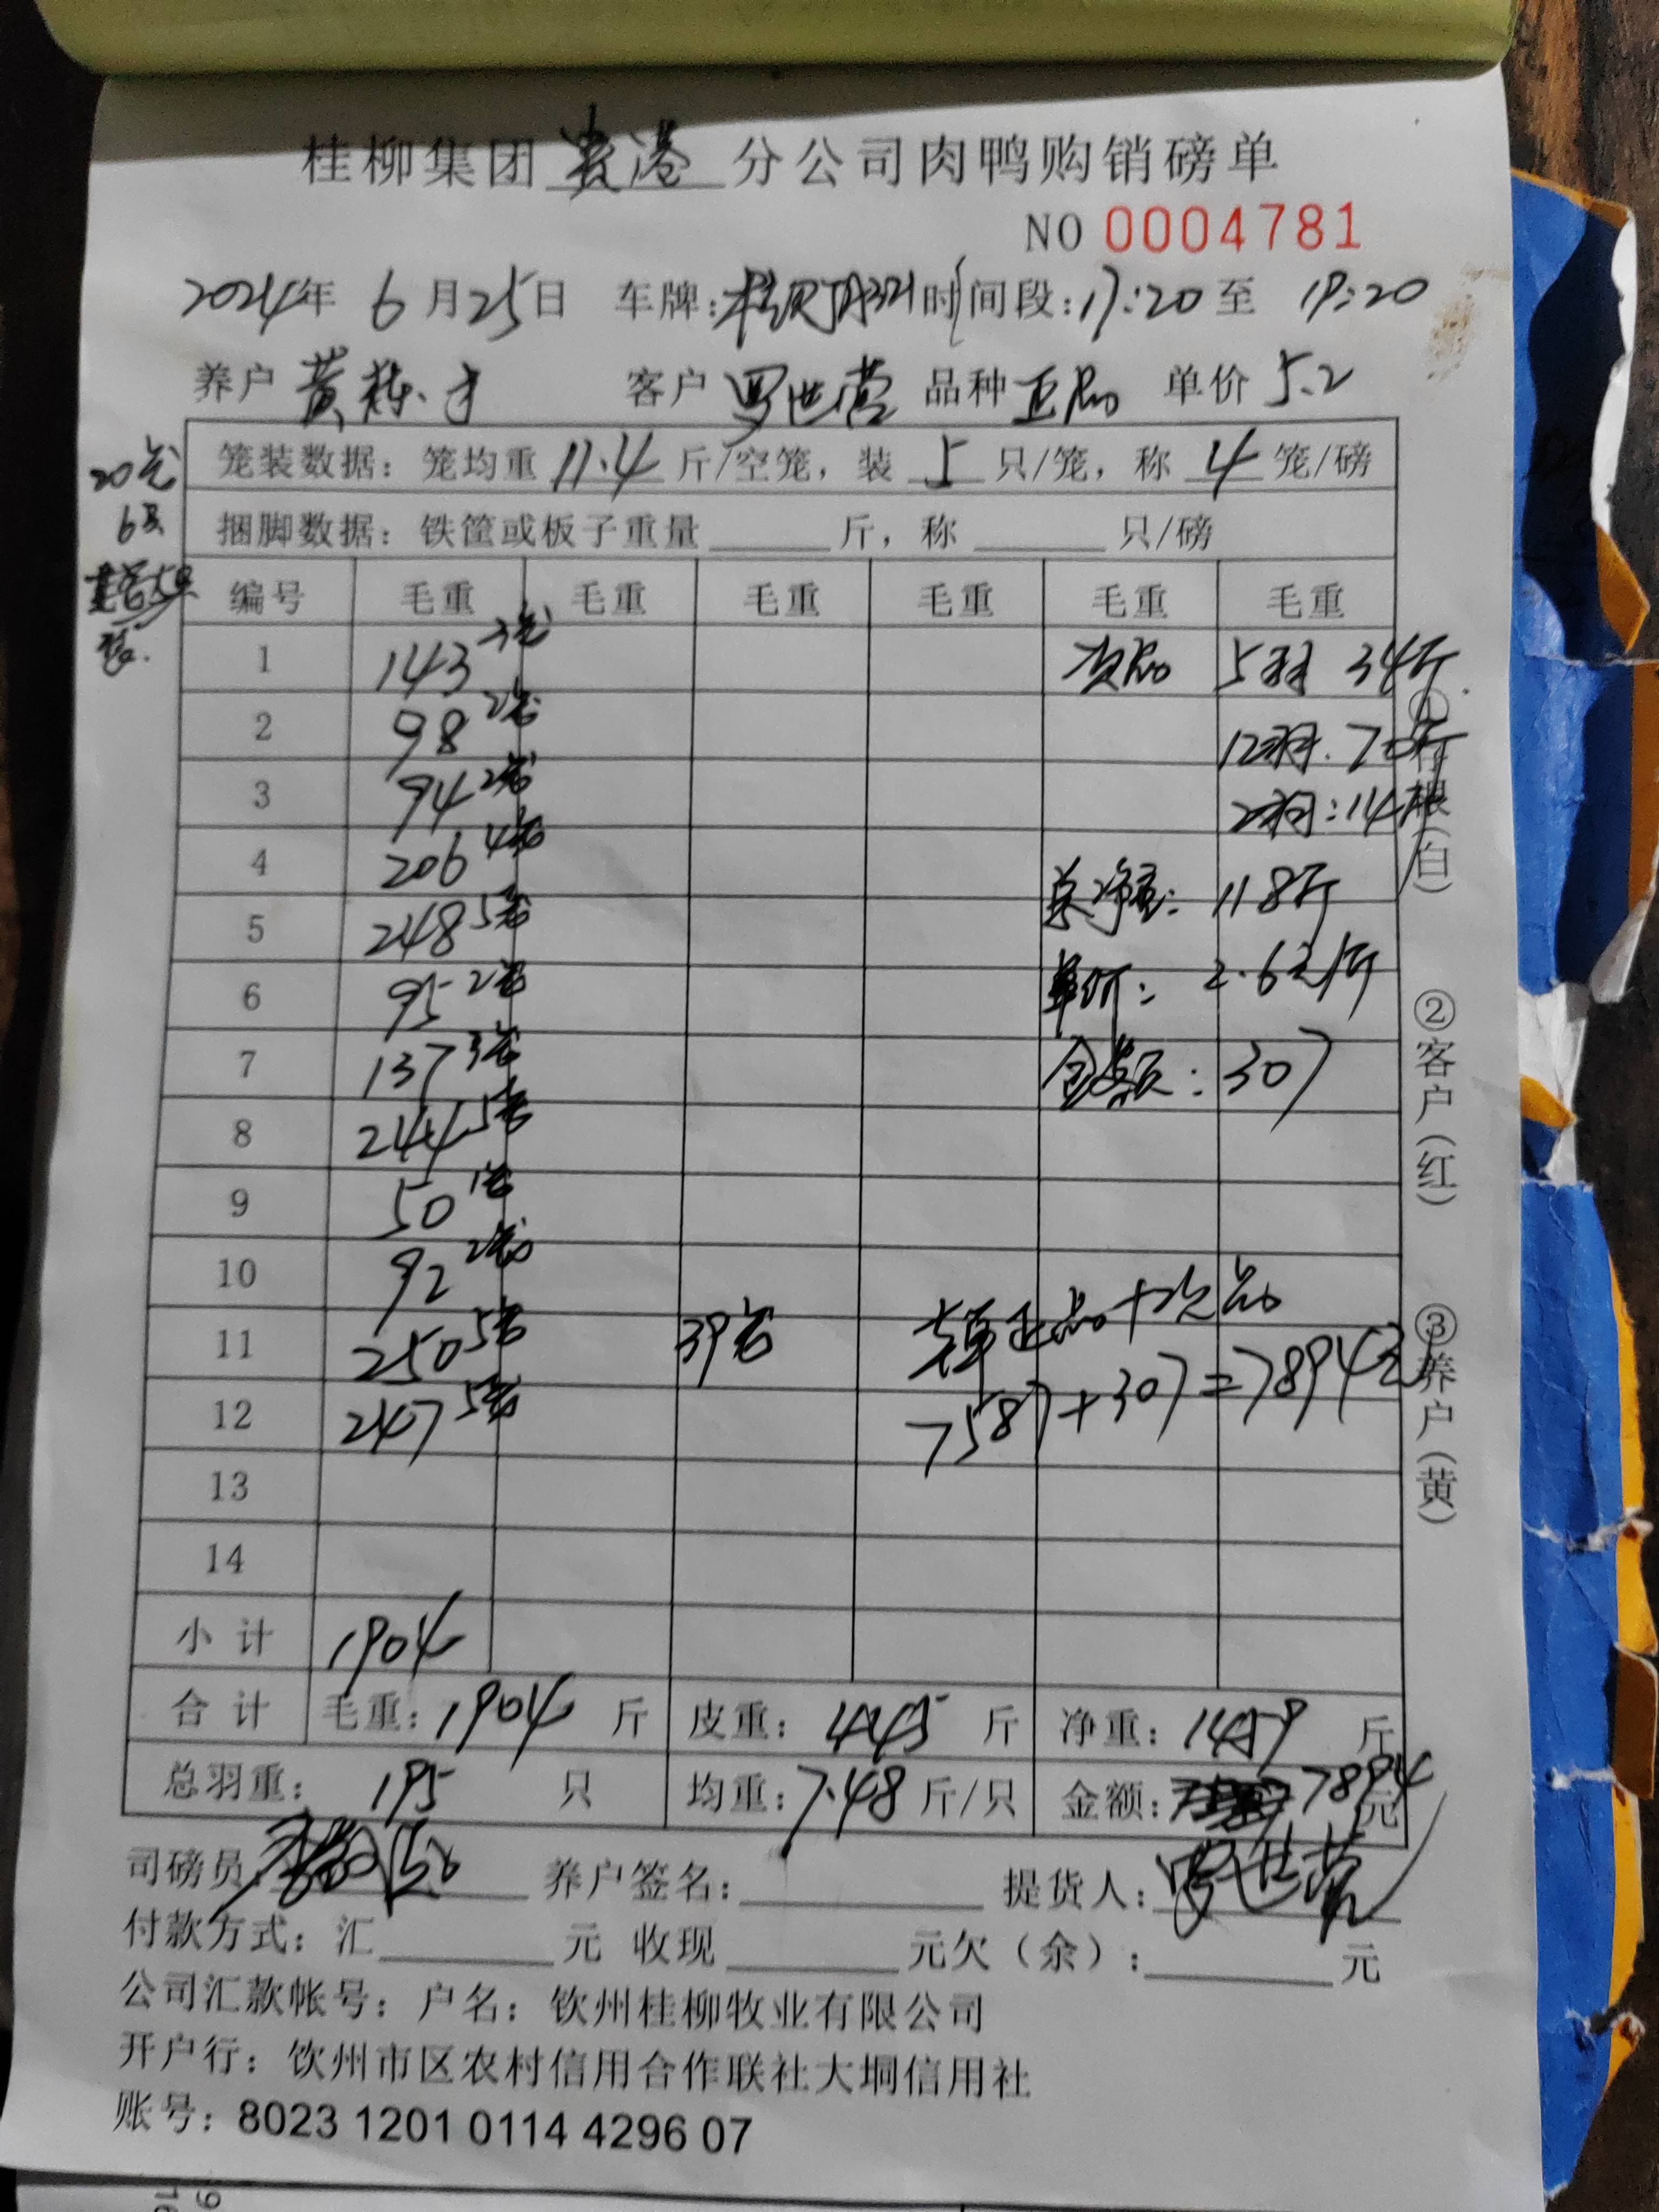 桂柳集团 贵港 分公司肉鸭购销磅单
NO 0004781
2024年 6月25日 车牌: 时间段:17:20 至 19:20
养户 黄 才 客户 罗世营 品种 正品 单价 5.2
笼装数据: 笼均重 11.4 斤/空笼, 装 5 只/笼, 称 4 笼/磅
20笼
6只
捆脚数据: 铁筐或板子重量 斤, 称 只/磅
编号 毛重 毛重 毛重 毛重 毛重 毛重
1 143 3笼 次品 5羽 34斤
2 98 2笼 12羽. 70斤
3 94 2笼 2羽:14斤
4 206 4笼 总净重: 118斤
5 248 5笼
6 95 2笼 单价: 2.6元/斤
7 137 3笼 金额: 307
8 244 5笼
9 50 1笼
10 92 2笼 正品+次品
11 250 5笼 39笼
12 247 5笼 7587+307=7894元
13
14
小计 1904
合计 毛重: 1904 斤 皮重: 445 斤 净重: 1459 斤
总羽重: 195 只 均重: 7.48 斤/只 金额: 7894 元
司磅员: 养户签名: 提货人: 罗世营
付款方式: 汇 元 收现 元欠(余): 元
公司汇款帐号: 户名: 钦州桂柳牧业有限公司
开户行: 饮州市区农村信用合作联社大垌信用社
账号: 8023 1201 0114 4296 07
①存根(白)
②客户(红)
③养户(黄)